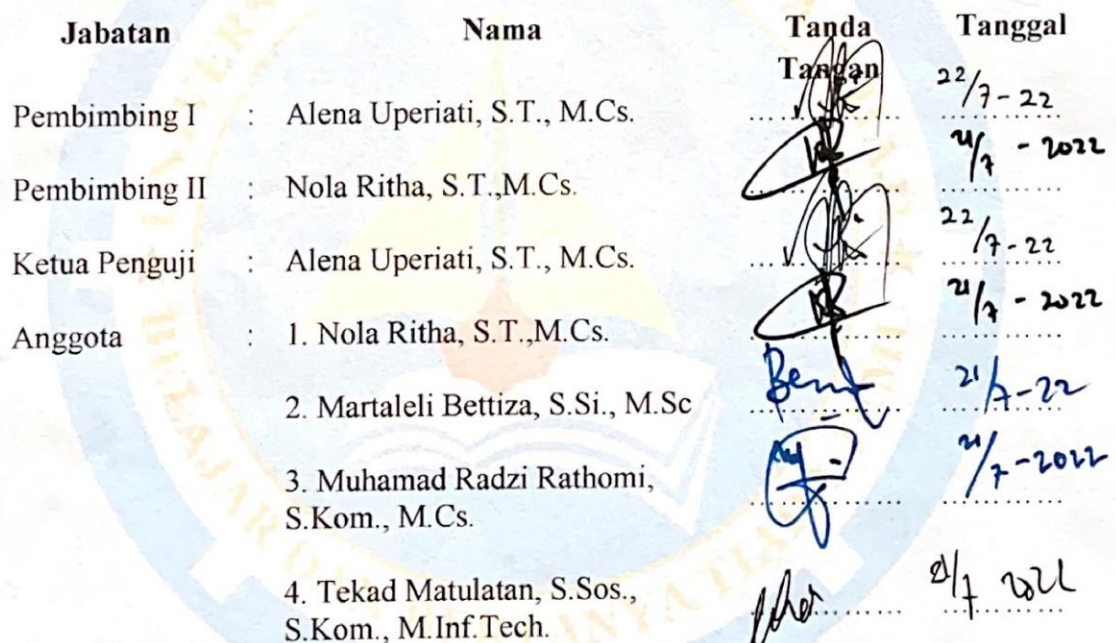 Jabatan Nama Tanda Tangan Tanggal
Pembimbing I : Alena Uperiati, S.T., M.Cs. 22/7-22
Pembimbing II : Nola Ritha, S.T.,M.Cs. 21/7 - 2022
Ketua Penguji : Alena Uperiati, S.T., M.Cs. 22/7-22
Anggota : 1. Nola Ritha, S.T.,M.Cs. 21/7 - 2022
2. Martaleli Bettiza, S.Si., M.Sc 21/7-22
3. Muhamad Radzi Rathomi, 21/7-2022
S.Kom., M.Cs.
4. Tekad Matulatan, S.Sos., 21/7 2022
S.Kom., M.Inf.Tech.